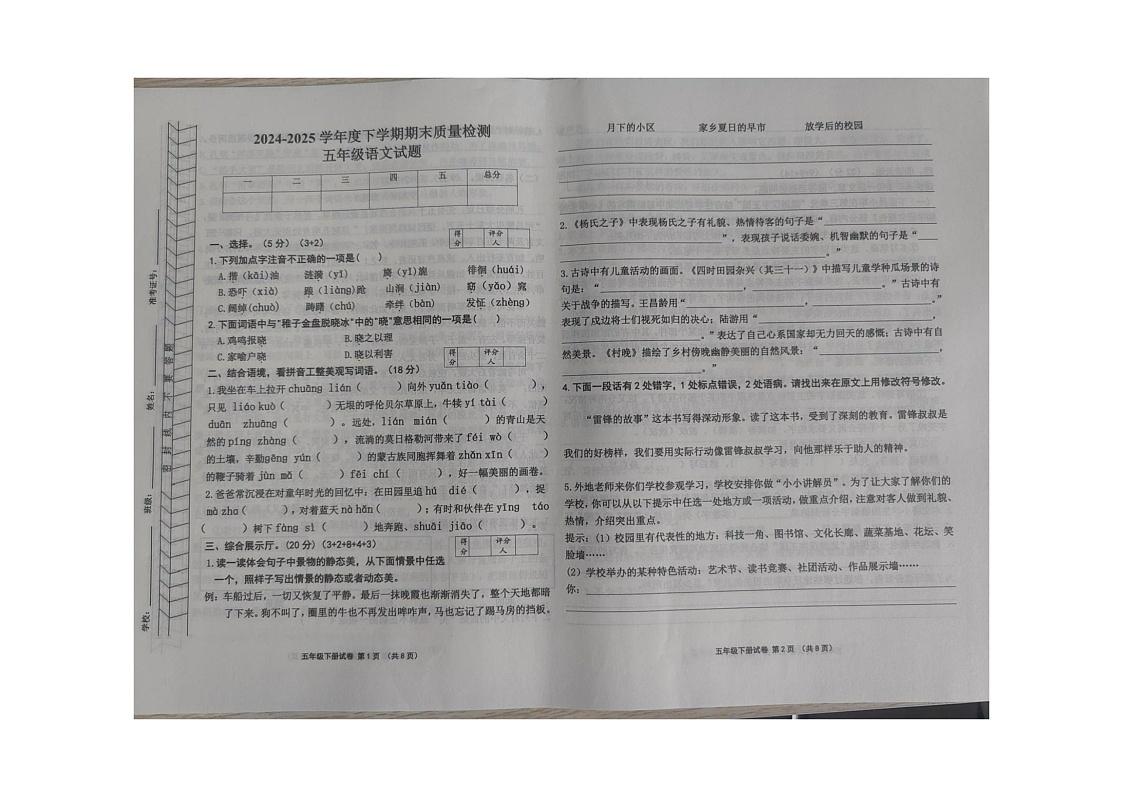 2024-2025 学年度下学期期末质量检测
五年级语文试题
一 二 三 四 五 总分
得分 评分人
一、选择。（5 分）（3+2）
1.下列加点字注音不正确的一项是（ ）
A.揩（kāi)油 涟漪（yī） 旖（yǐ)旎 徘徊（huái）
B.恐吓（xià） 踉（liàng)跄 山涧（jiàn） 窈（yǎo）窕
C.阔绰(chuò) 踌躇（chú） 牵绊（bàn） 发怔（zhèng）
2.下面词语中与"稚子金盘脱晓冰"中的"晓"意思相同的一项是( )
A.鸡鸣报晓 B.晓之以理
C.家喻户晓 D.晓以利害
得分 评分人
二、结合语境，看拼音工整美观写词语。（18 分）
1.我坐在车上拉开 chuāng lián（ ）向外 yuǎn tiào（ ），
只见 liáo kuò（ ）无垠的呼伦贝尔草原上，牛犊 yí tài（ ）
duān zhuāng（ ）。远处，lián mián（ ）的青山是天
然的 píng zhàng（ ），流淌的莫日格勒河带来了 féi wò（ ）
的土壤，辛勤 gēng yún（ ）的蒙古族同胞挥舞着 zhǎn xīn（ ）
的鞭子骑着 jùn mǎ（ ）fēi chí（ ），好一幅美丽的画卷。
2.爸爸常沉浸在对童年时光的回忆中：在田园里追 hú dié（ ），捉
mà zha（ ），对着蓝天 nà hǎn（ ）；有时和伙伴在 yīng táo
（ ）树下 fàng sì（ ）地奔跑、shuāi jiāo（ ）。
得分 评分人
三、综合展示厅。（20 分）（3+2+8+4+3）
1.读一读体会句子中景物的静态美，从下面情景中任选
一个，照样子写出情景的静态或者动态美。
例：车船过后，一切又恢复了平静。最后一抹晚霞也渐渐消失了，整个天地都暗
了下来。狗不叫了，圈里的牛也不再发出哞哞声，马也忘记了踢马房的挡板。
五年级下册试卷 第 1 页 （共 8 页）
学校： 班级： 姓名： 准考证号：
密 封 线 内 不 要 答 题
月下的小区 家乡夏日的早市 放学后的校园
2.《杨氏之子》中表现杨氏之子有礼貌、热情待客的句子是“
”，表现孩子说话委婉、机智幽默的句子是“
。”
3.古诗中有儿童活动的画面。《四时田园杂兴（其三十一）》中描写儿童学种瓜场景的诗
句是：“ ， 。”古诗中有
关于战争的描写。王昌龄用“ ， 。”
表现了戍边将士们视死如归的决心；陆游用“ ，
。”表达了自己心系国家却无力回天的感慨；古诗中有自
然美景。《村晚》描绘了乡村傍晚幽静美丽的自然风景：“ ，
。”
4.下面一段话有 2 处错字，1 处标点错误，2 处语病。请找出来在原文上用修改符号修改。
“雷锋的故事”这本书写得深动形象。读了这本书，受到了深刻的教育。雷锋叔叔是
我们的好榜样，我们要用实际行动像雷锋叔叔学习，向他那样乐于助人的精神。
5.外地老师来你们学校参观学习，学校安排你做“小小讲解员”。为了让大家了解你们的
学校，你可以从以下提示中任选一处地方或一项活动，做重点介绍，注意对客人做到礼貌、
热情，介绍突出重点。
提示：（1）校园里有代表性的地方：科技一角、图书馆、文化长廊、蔬菜基地、花坛、笑
脸墙……
（2）学校举办的某种特色活动：艺术节、读书竞赛、社团活动、作品展示墙……
你：
五年级下册试卷 第 2 页 （共 8 页）